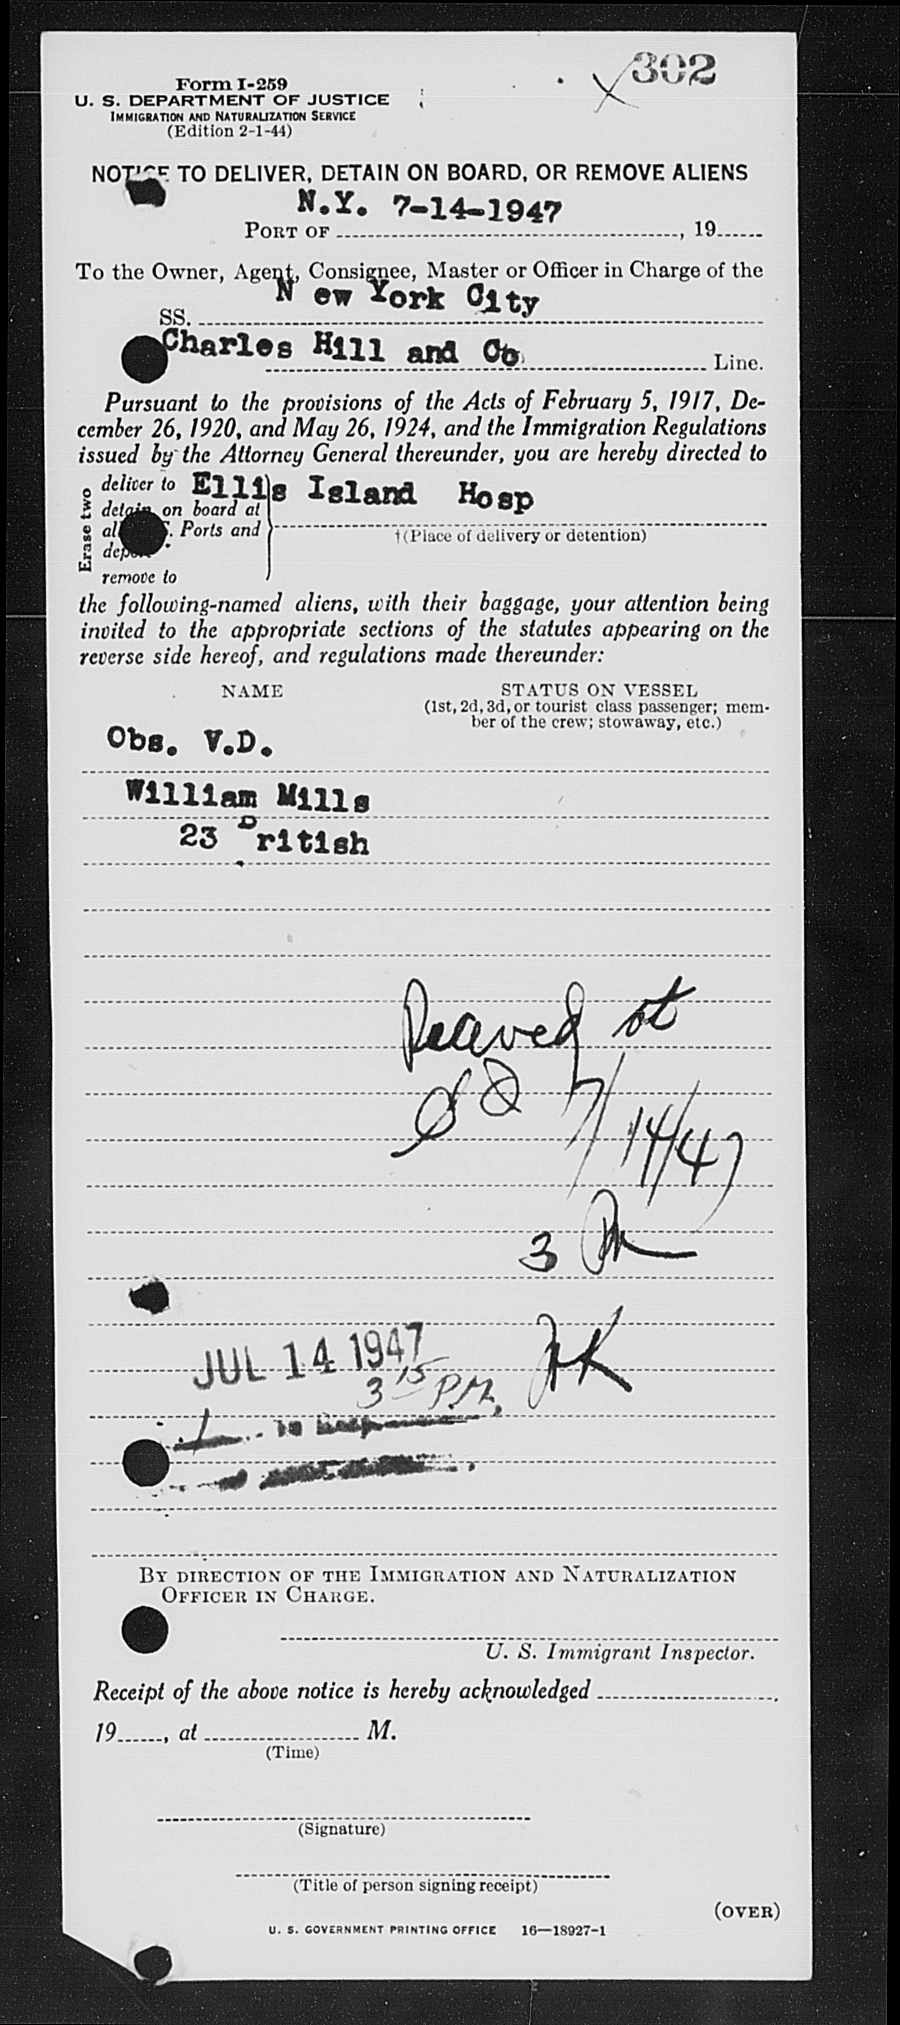 302
Form I-259
U. S. DEPARTMENT OF JUSTICE
IMMIGRATION AND NATURALIZATION SERVICE
(Edition 2-1-44)
NOTICE TO DELIVER, DETAIN ON BOARD, OR REMOVE ALIENS
N.Y. 7-14-1947
PORT OF , 19
To the Owner, Agent, Consignee, Master or Officer in Charge of the
N ew York City
SS.
Charles Hill and Co
Line.
Pursuant to the provisions of the Acts of February 5, 1917, De-
cember 26, 1920, and May 26, 1924, and the Immigration Regulations
issued by the Attorney General thereunder, you are hereby directed to
Erase two
deliver to Ellis Island Hosp
detain on board at
Ports and
†(Place of delivery or detention)
remove to
the following-named aliens, with their baggage, your attention being
invited to the appropriate sections of the statutes appearing on the
reverse side hereof, and regulations made thereunder:
NAME STATUS ON VESSEL
(1st, 2d, 3d, or tourist class passenger; mem-
ber of the crew; stowaway, etc.)
Obs. V.D.
William Mills
23 British
Received at
7/14/47
3 Pm
JUL 14 1947
3 15 P.M.
BY DIRECTION OF THE IMMIGRATION AND NATURALIZATION
OFFICER IN CHARGE.
U. S. Immigrant Inspector.
Receipt of the above notice is hereby acknowledged
19 , at M.
(Time)
(Signature)
(Title of person signing receipt)
(OVER)
U. S. GOVERNMENT PRINTING OFFICE 16—18927-1